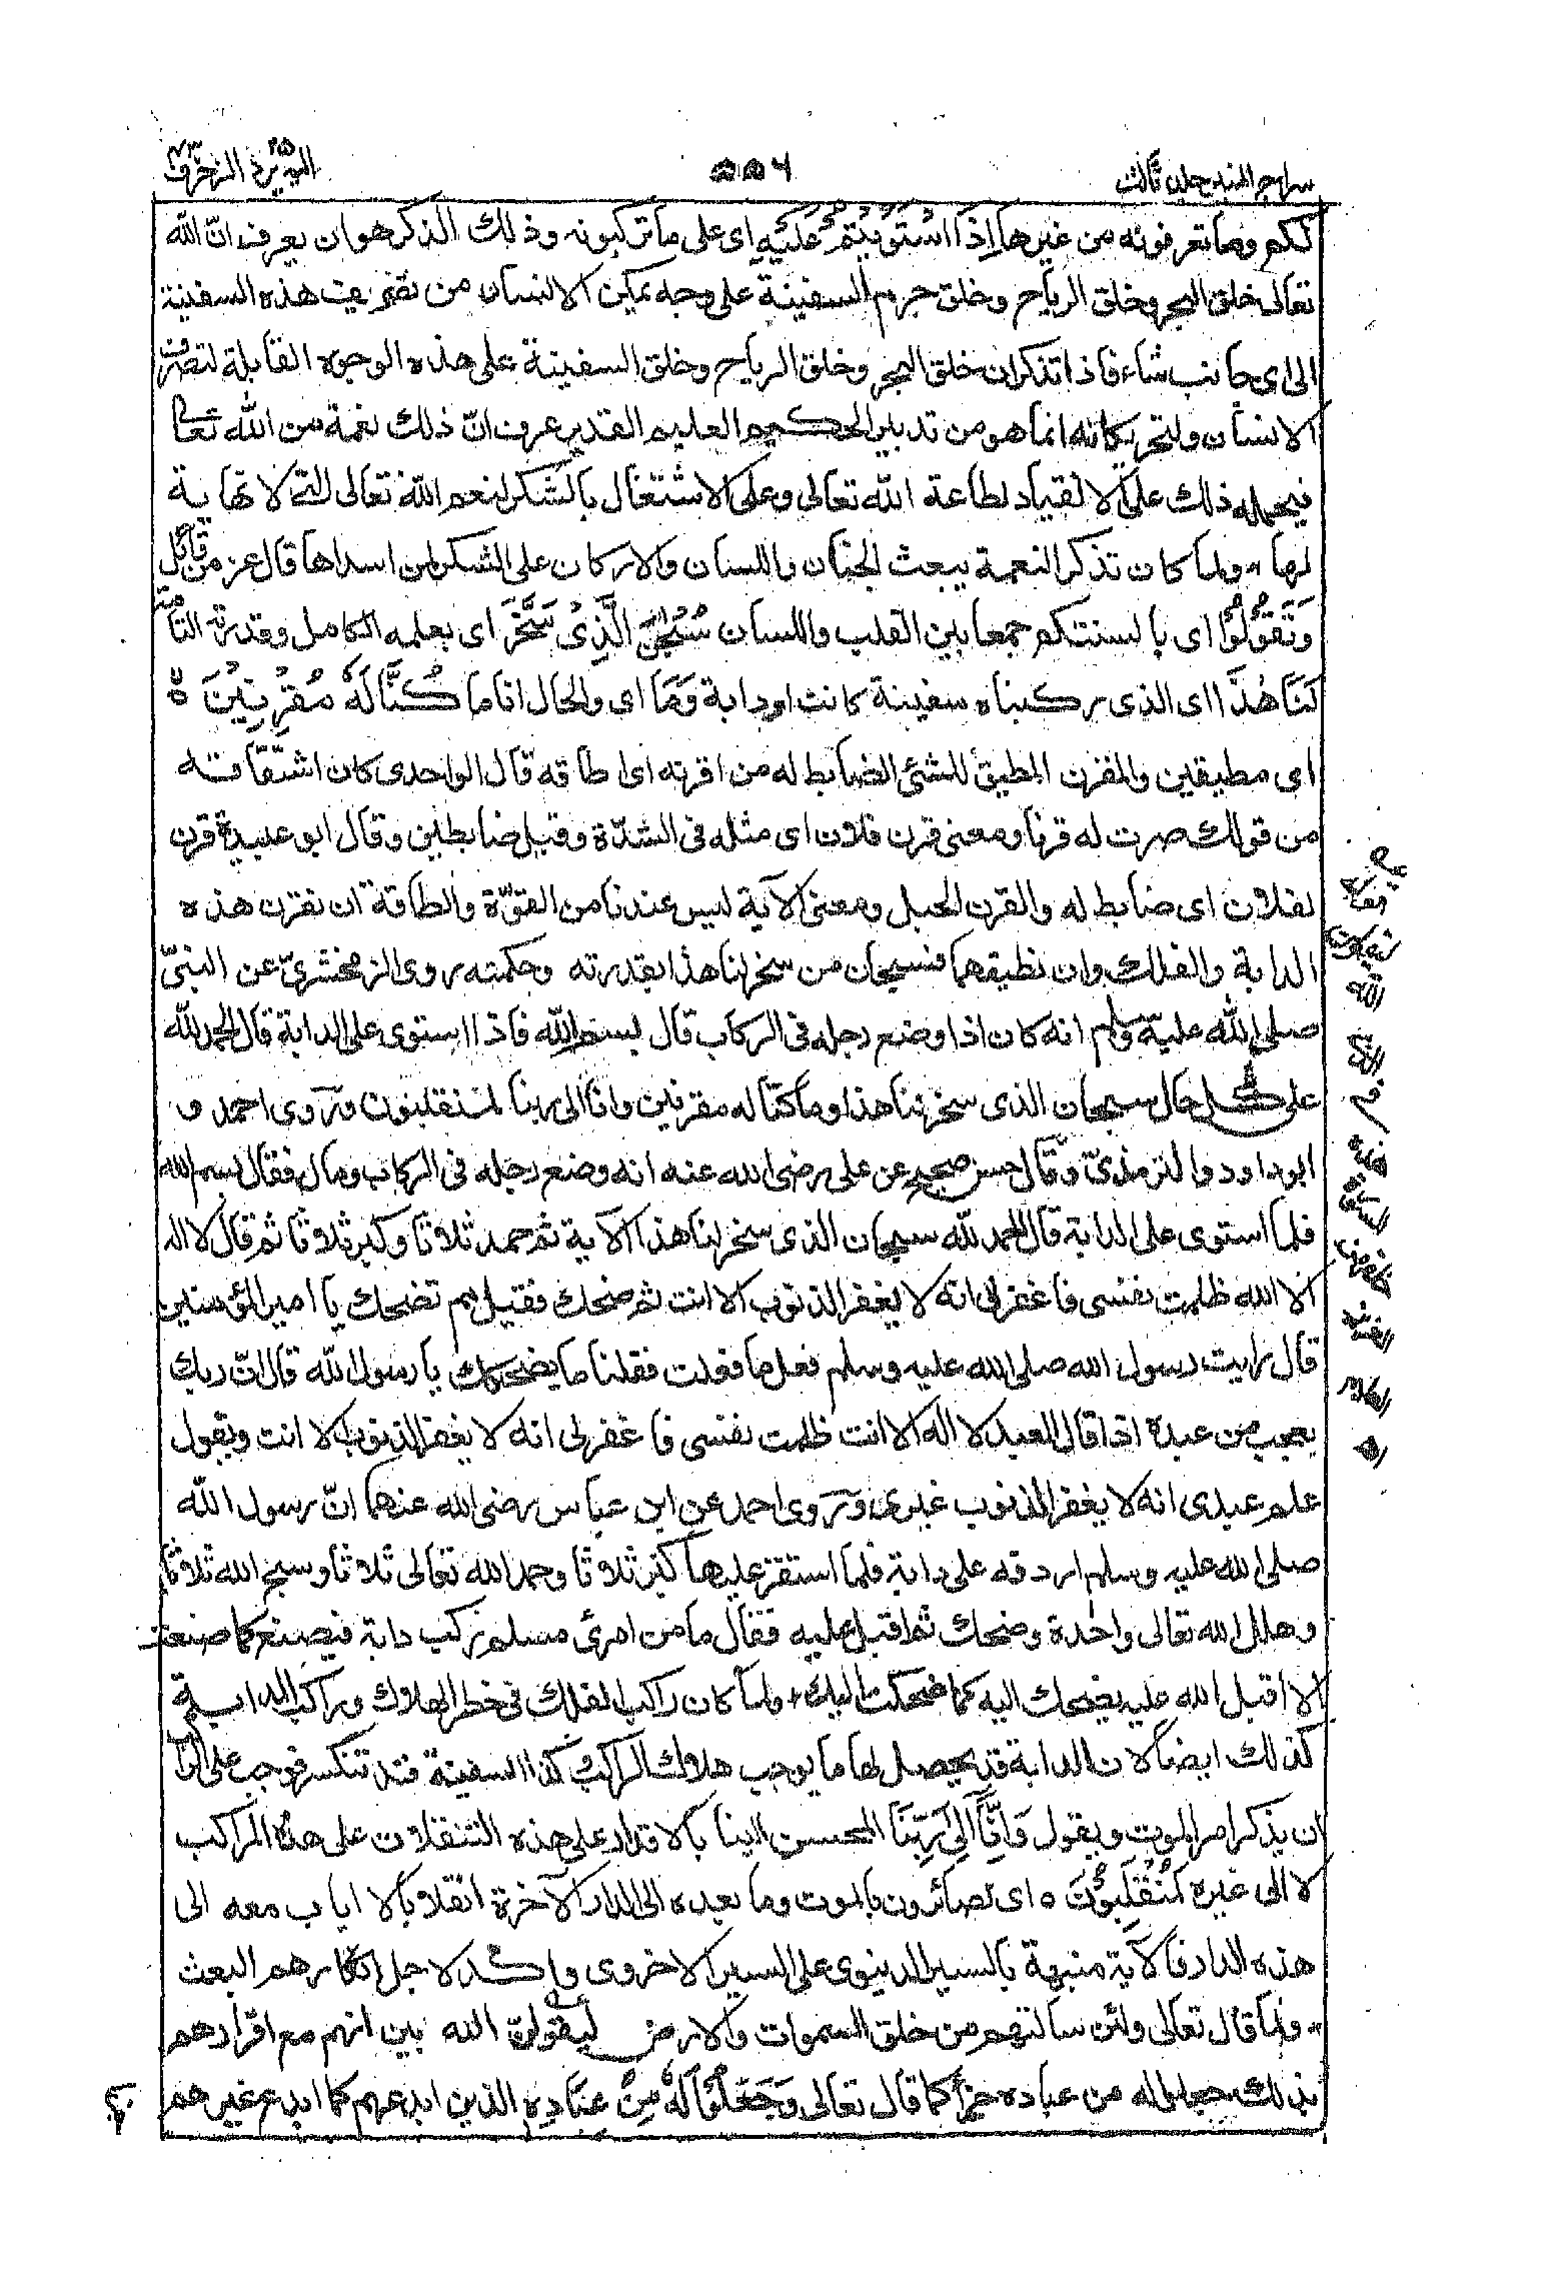 سراج المنير جلد ثالث
٥٥٦
اليه يرد ٢٥ الزخرف ٤٣
لكم وما تعرفونه من غيرها اِذَا اسْتَوَيْتُمْ عَلَيْهِ اى على ما تركبونه وذلك الذكر هو ان يعرف انّ الله
تعالى خلق البحر وخلق الرياح وخلق جرم السفينة على وجه يمكن الانسان من تصريف هذه السفينة
الى اى جانب شاء فاذا تذكر ان خلق البحر وخلق الرياح وخلق السفينة على هذه الوجوه القابلة لتصرف
الانسان ولتحريكاته انما هو من تدبير الحكيم العليم القدير عرف انّ ذلك نعمة من الله تعالى
فيحمله ذلك على الانقياد لطاعة الله تعالى وعلى الاشتغال بالشكر لنعم الله تعالى التى لا نهاية
لها ولما كان تذكر النعمة يبعث الجنان واللسان والاركان على الشكر لمن اسداها قال عز من قائل
وَتَقُوْلُوْا اى بالسنتكم جمعا بين القلب واللسان سُبْحٰنَ الَّذِىْ سَخَّرَ اى بعلمه الكامل وقدرته التامّة
لَنَا هٰذَا اى الذى ركبناه سفينة كانت او دابة وَمَا اى والحال انا ما كُنَّا لَهٗ مُقْرِنِيْنَ ٥
اى مطيقين والمقرن المطيق للشئ الضابط له من اقرنه اى اطاقه قال الواحدى كان اشتقاقه
من قولك صرت له قرنا ومعنى قرن فلان اى مثله فى الشدّة وقيل ضابطين وقال ابو عبيدة قرن
لفلان اى ضابط له والقرن الحبل ومعنى الآية ليس عندنا من القوّة والطاقة ان نقرن هذه
الدابة والفلك وان نطيقهما فسبحان من سخر لنا هذا بقدرته وحكمته روى الزمخشرىّ عن النبىّ
صلى الله عليه وسلم انه كان اذا وضع رجله فى الركاب قال بسم الله فاذا استوى على الدابة قال الحمد لله
على كل حال سبحان الذى سخر لنا هذا وما كنا له مقرنين وانا الى ربنا لمنقلبون وروى احمد و
ابو داود والترمذىّ وقال حسن صحيح عن على رضى الله عنه انه وضع رجله فى الركاب وقال فقال بسم الله
فلما استوى على الدابة قال الحمد لله سبحان الذى سخر لنا هذا الآية ثم حمد ثلاثا وكبر ثلاثا ثم قال لا اله
الا الله ظلمت نفسى فاغفر لى انه لا يغفر الذنوب الا انت ثم ضحك فقيل مم تضحك يا امير المؤمنين
قال رايت رسول الله صلى الله عليه وسلم فعل ما فعلت فقلنا ما يضحكك يا رسول الله قال انّ ربك
يعجب من عبده اذا قال العبد لا اله الا انت ظلمت نفسى فاغفر لى انه لا يغفر الذنوب الا انت ويقول
علم عبدى انه لا يغفر الذنوب غيرى وروى احمد عن ابن عباس رضى الله عنهما انّ رسول الله
صلى الله عليه وسلم اردفه على دابة فلما استقر عليها كبر ثلاثا وحمد الله تعالى ثلاثا وسبح الله ثلاثا
وهلل الله تعالى واحدة وضحك ثم اقبل عليه فقال ما من امرئ مسلم يركب دابة فيصنع كما صنعت
الا اقبل الله عليه يضحك اليه كما ضحكت اليك ولما كان راكب الفلك فى خطر الهلاك وراكب الدابة
كذلك ايضا لان الدابة قد يحصل لها ما يوجب هلاك الراكب وكذا السفينة قد تنكسر فوجب على الراكب
ان يذكر امر الموت ويقول وَاِنَّآ اِلٰى رَبِّنَا المحسن الينا بالاقدار على هذه التنقلات على هذه المراكب
لا الى غيره لَمُنْقَلِبُوْنَ ٥ اى لصائرون بالموت وما بعده الى الدار الآخرة انقلابا لا اياب معه الى
هذه الدار فالآية منبهة بالسير الدنيوى على السير الاخروى واكد لاجل انكارهم البعث
ولما قال تعالى ولئن سالتهم من خلق السموات والارض ليقولن الله بين انهم مع اقرارهم
بذلك جعلوا له من عباده جزأ كما قال تعالى وَجَعَلُوْا لَهٗ مِنْ عِبَادِهٖ الذين ابدعهم كما ابدع غيرهم